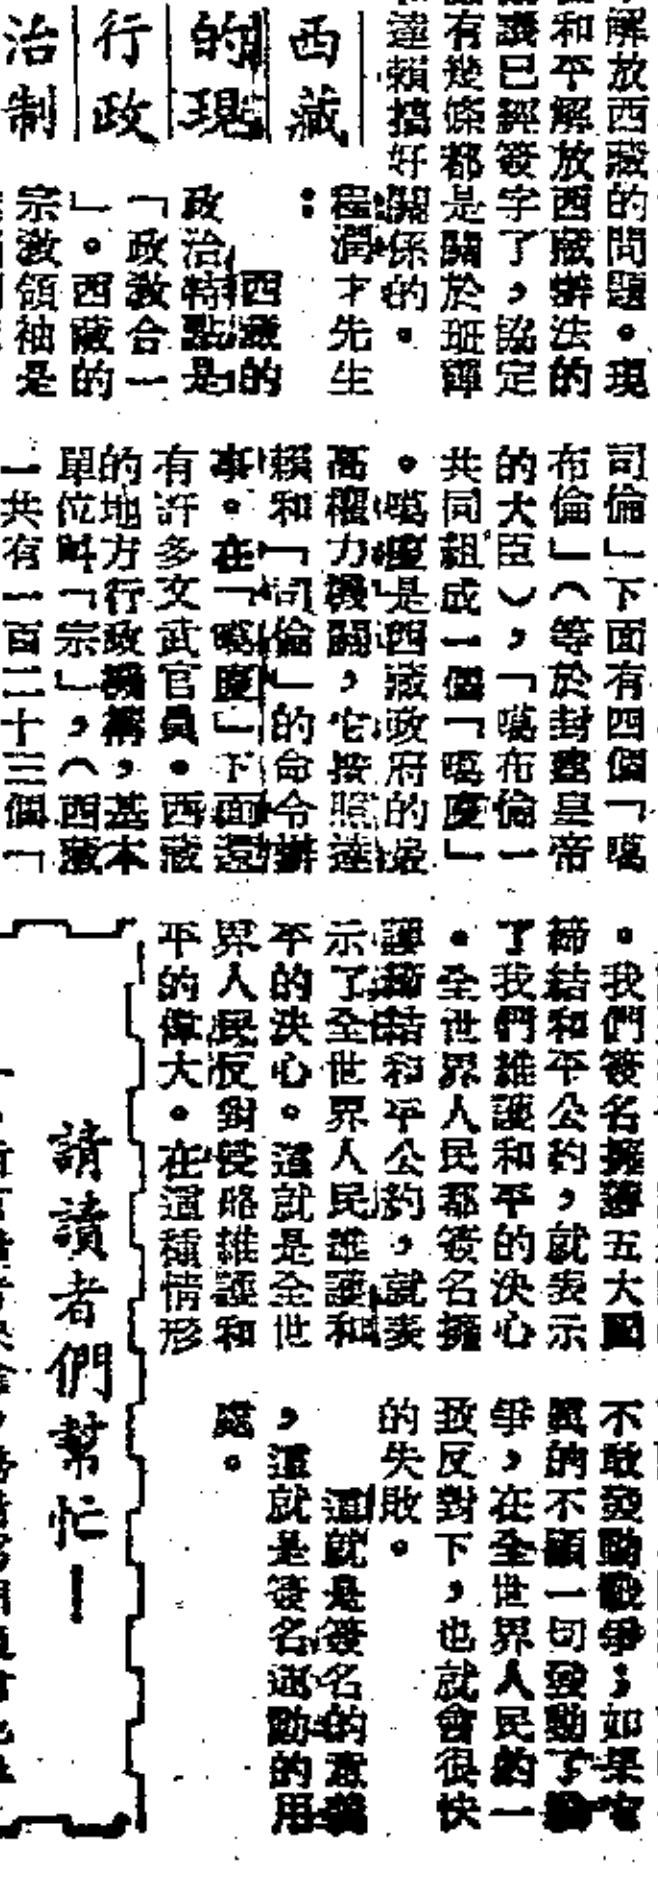 解放西藏的問題。現
和平解放西藏辦法的
議已經簽字了，協定
有幾條都是關於班禪
達賴搞好關係的。
西藏
的現
行政
治制
程潤才先生
：
西藏的
政治特點是
「政教合一
」。西藏的
宗教領袖是
司倫」下面有四個「噶
布倫」（等於封建皇帝
的大臣），「噶布倫一
共同組成一個「噶廈」
。噶廈是西藏政府的最
高權力機關，它按照達
賴和「司倫」的命令辦
事。在「噶廈」下面還
有許多文武官員。西藏
的地方行政機構，基本
單位叫「宗」，（西藏
一共有一百二十三個「
。我們簽名擁護五大國
締結和平公約，就表示
了我們維護和平的決心
。全世界人民都簽名擁
護締結和平公約，就表
示了全世界人民維護和
平的決心。這就是全世
界人民反對侵略維護和
平的偉大。在這種情形
不敢發動戰爭；如果它
真的不顧一切發動了戰
爭，在全世界人民的一
致反對下，也就會很快
的失敗。
這就是簽名的意義
，這就是簽名運動的用
處。
請讀者們幫忙！